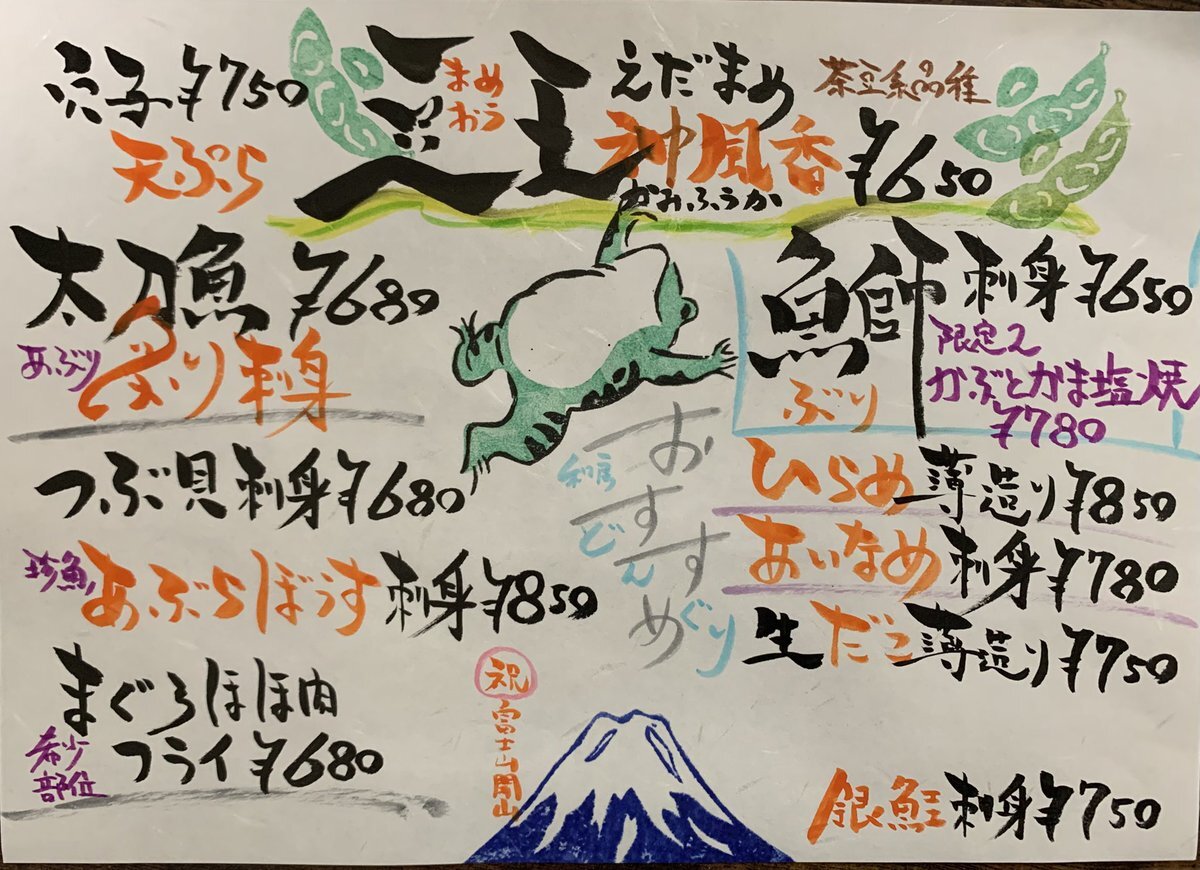 豆王 まめおう えだまめ 茶豆系品種
神風香 かみふうか ¥650
鰤 ぶり 刺身 ¥650
限定2
かぶとかま塩焼
¥780
ひらめ 薄造り ¥850
あいなめ 刺身 ¥780
生だこ 薄造り ¥750
銀鮭 刺身 ¥750
おすすめ
どんぐり
穴子 ¥750
天ぷら
太刀魚 ¥680
あぶり 炙り刺身
つぶ貝刺身 ¥680
珍魚 あぶらぼうず 刺身 ¥850
まぐろほほ肉
フライ ¥680
希少
部位
祝
富士山開山